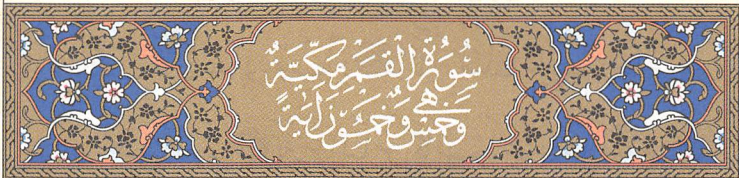 سُورَةُ الْقَمَرِ مَكِّيَّةٌ
وَهِيَ خَمْسٌ وَخَمْسُونَ اٰيَةً